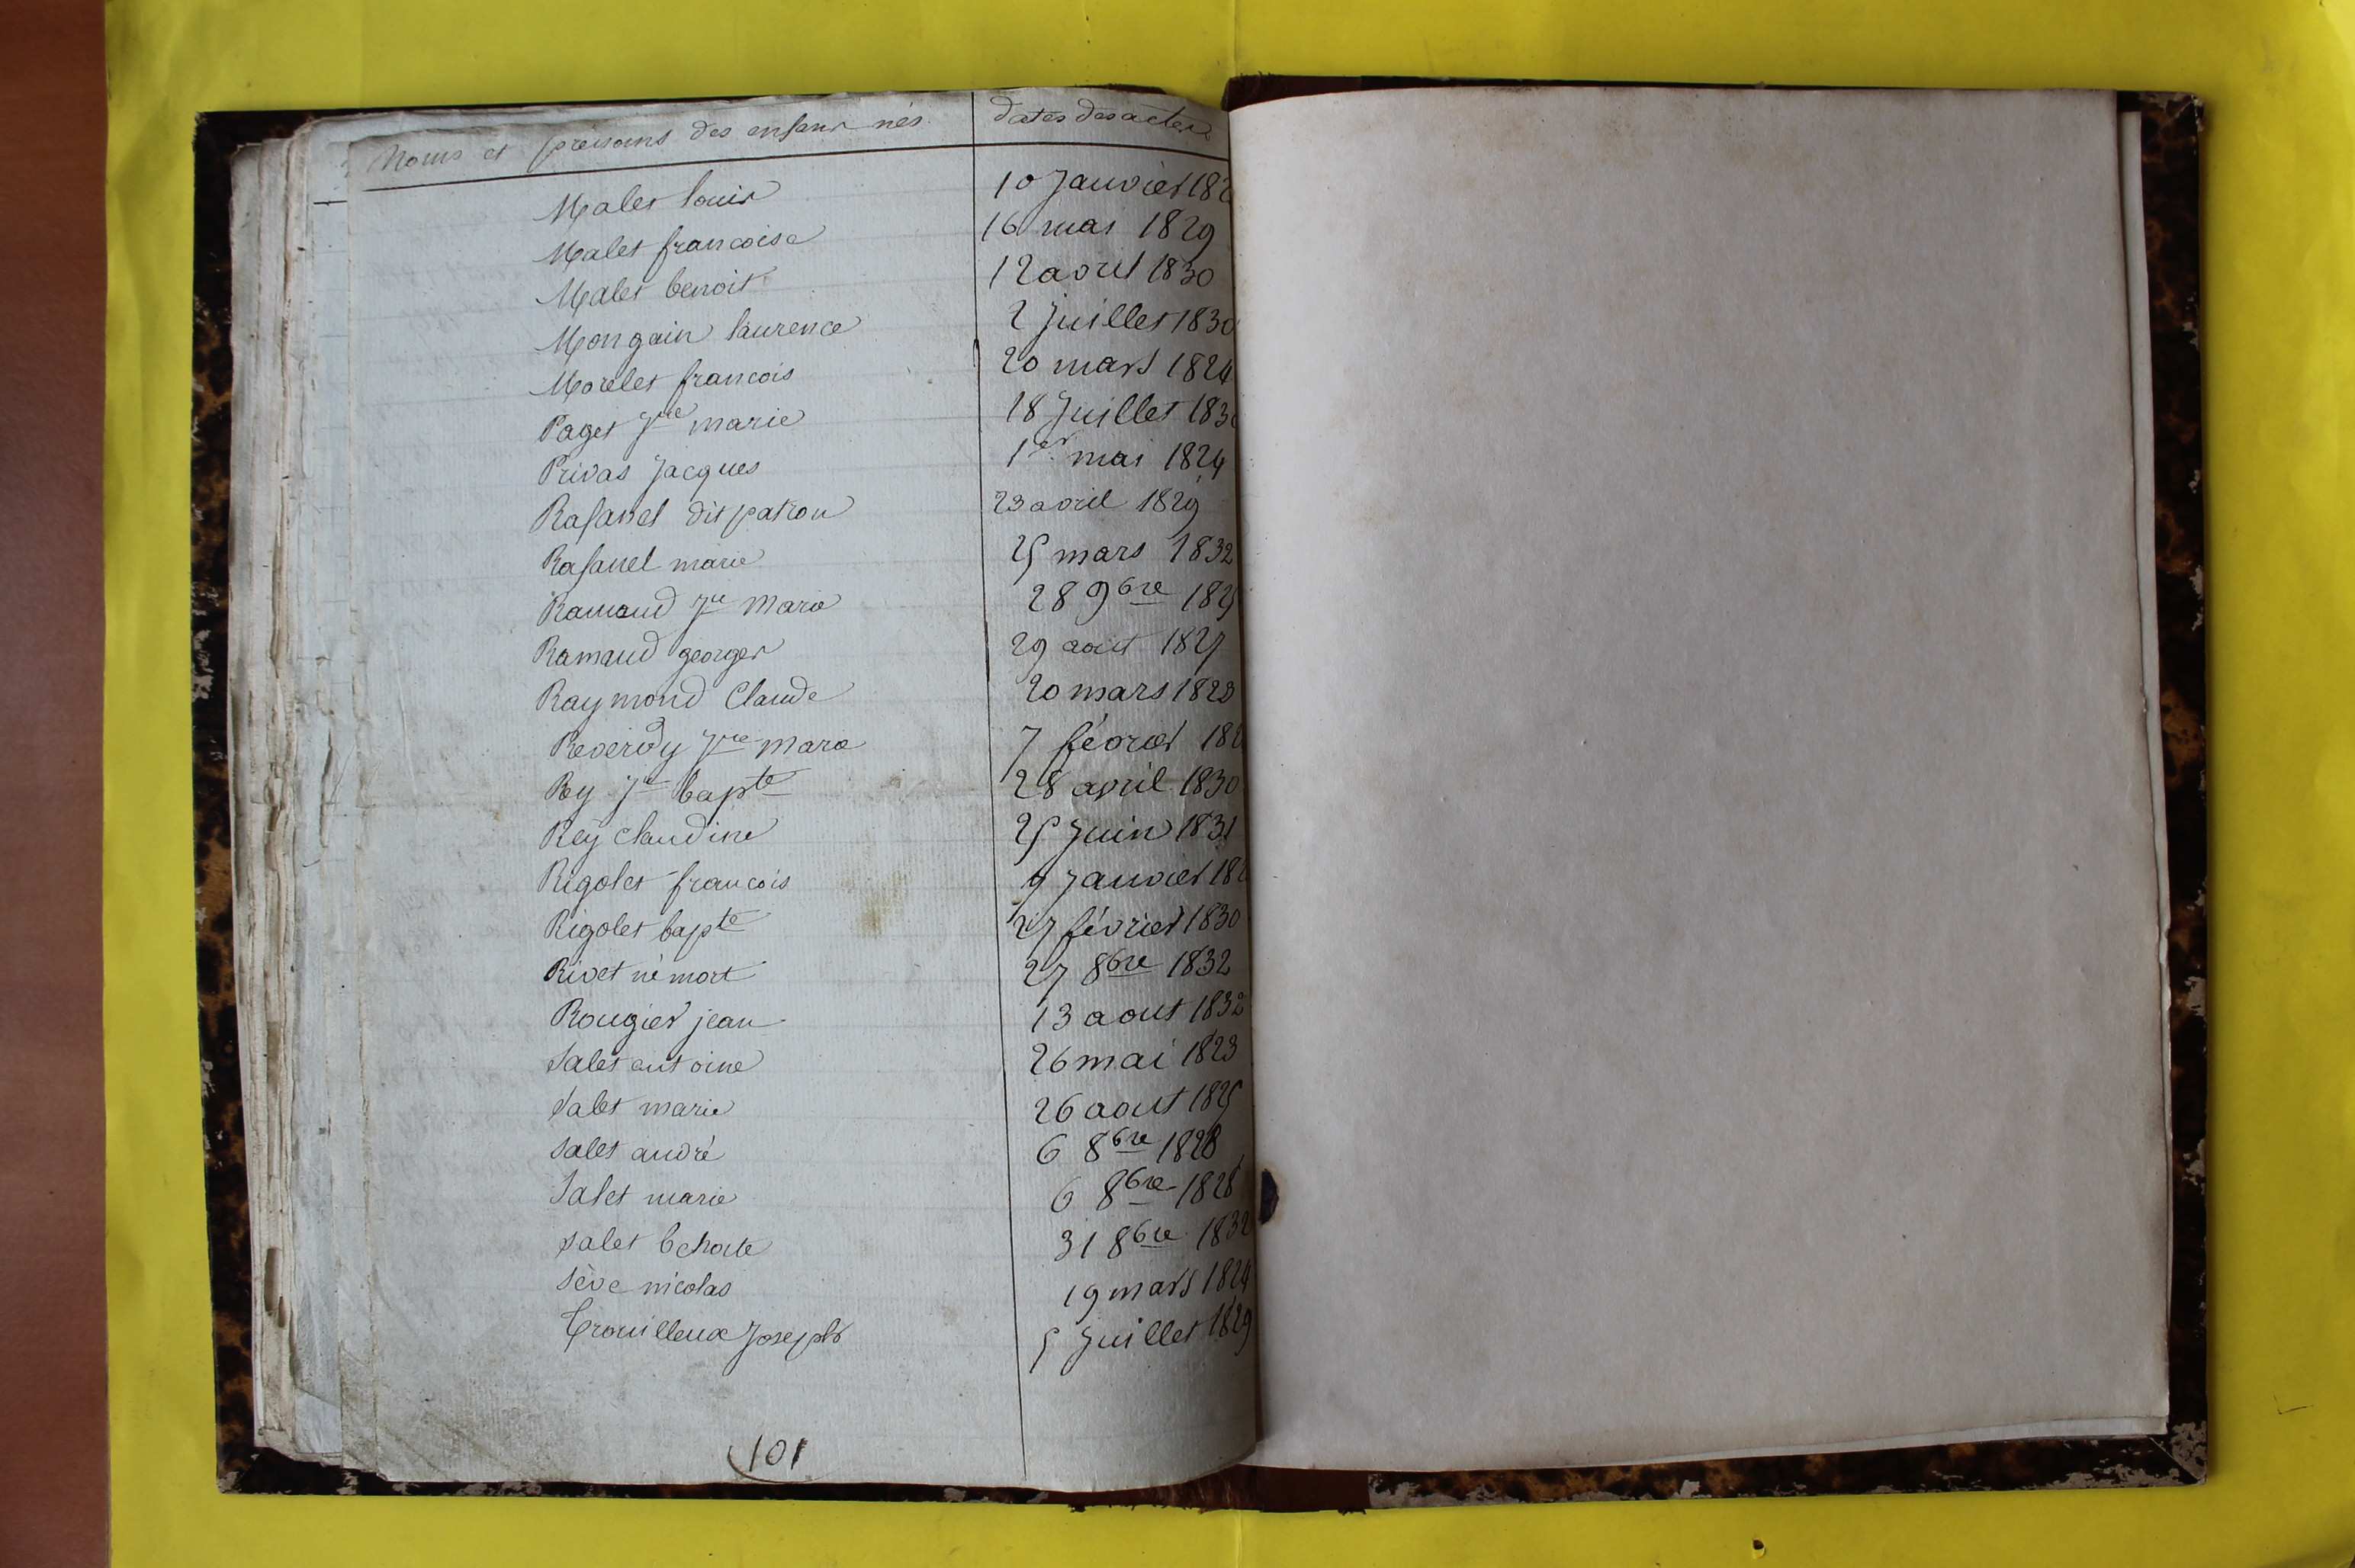 Noms et prénoms des enfans nés dates des actes
Malet louis 10 Janvier
Malet francoise 16 mai 1829
Malet benoit 12 avril 1830
Mongain laurence 2 Juillet 1830
Morelet francois 20 mars 1824
Paget Jne marie 18 Juillet
Privas Jacques 1er mai 1824
Rafanel dit patrou 23 avril 1829
Rafanel marie 25 mars 1832
Ramaud Jne Marie 28 9bre 1825
Ramaud georges 29 aout 1827
Raymond Claude 20 mars 1823
Reverdy Jne marie 7 février
Rey Jn bapte 28 avril 1830
Rey claudine 25 Juin 1831
Rigolet francois 9 Janvier
Rigolet bapte 27 février 1830
Rivet né mort 27 8bre 1832
Rougier jean 13 aout 1832
Salet antoine 26 mai 1823
Salet marie 26 aout 1825
Salet andré 6 8bre 1828
Salet marie 6 8bre 1828
Salet 31 8bre 1832
Sève nicolas 19 mars 1824
Trouilleux Joseph 5 Juillet 1829
101